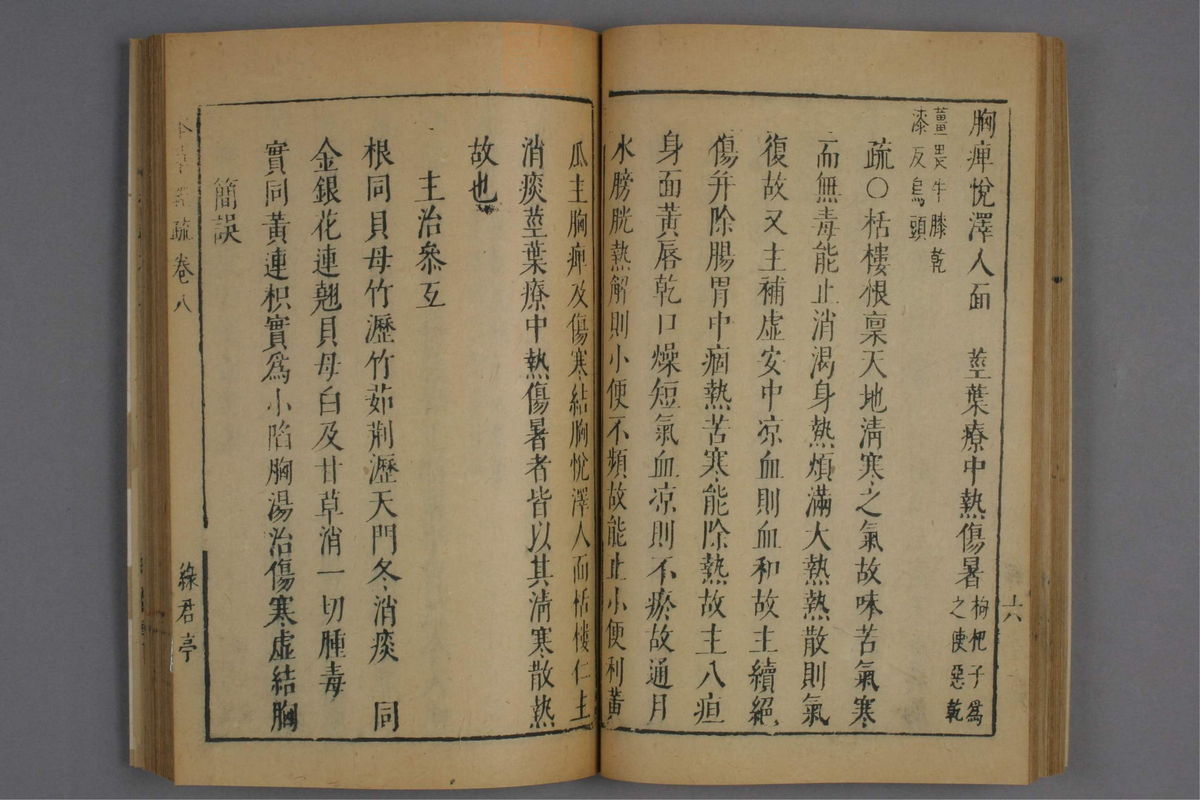 胸痺悅澤人面　莖葉療中熱傷暑枸杞子爲之使惡乾
薑畏牛膝乾漆反烏頭
疏〇栝樓根稟天地淸寒之氣故味苦氣寒
而無毒能止消渴身熱煩滿大熱熱散則氣
復故又主補虛安中凉血則血和故主續絕
傷并除腸胃中痼熱苦寒能除熱故主八疸
身面黃唇乾口燥短氣血凉則不瘀故通月
水膀胱熱解則小便不頻故能止小便利黃
瓜主胸痺及傷寒結胸悅澤人面栝樓仁主
消痰莖葉療中熱傷暑者皆以其淸寒散熱
故也
主治參互
根同貝母竹瀝竹茹荆瀝天門冬消痰　同
金銀花連翹貝母白及甘草消一切腫毒
實同黃連枳實爲小陷胸湯治傷寒虛結胸
簡誤
本草經疏　卷八
綠君亭
十六